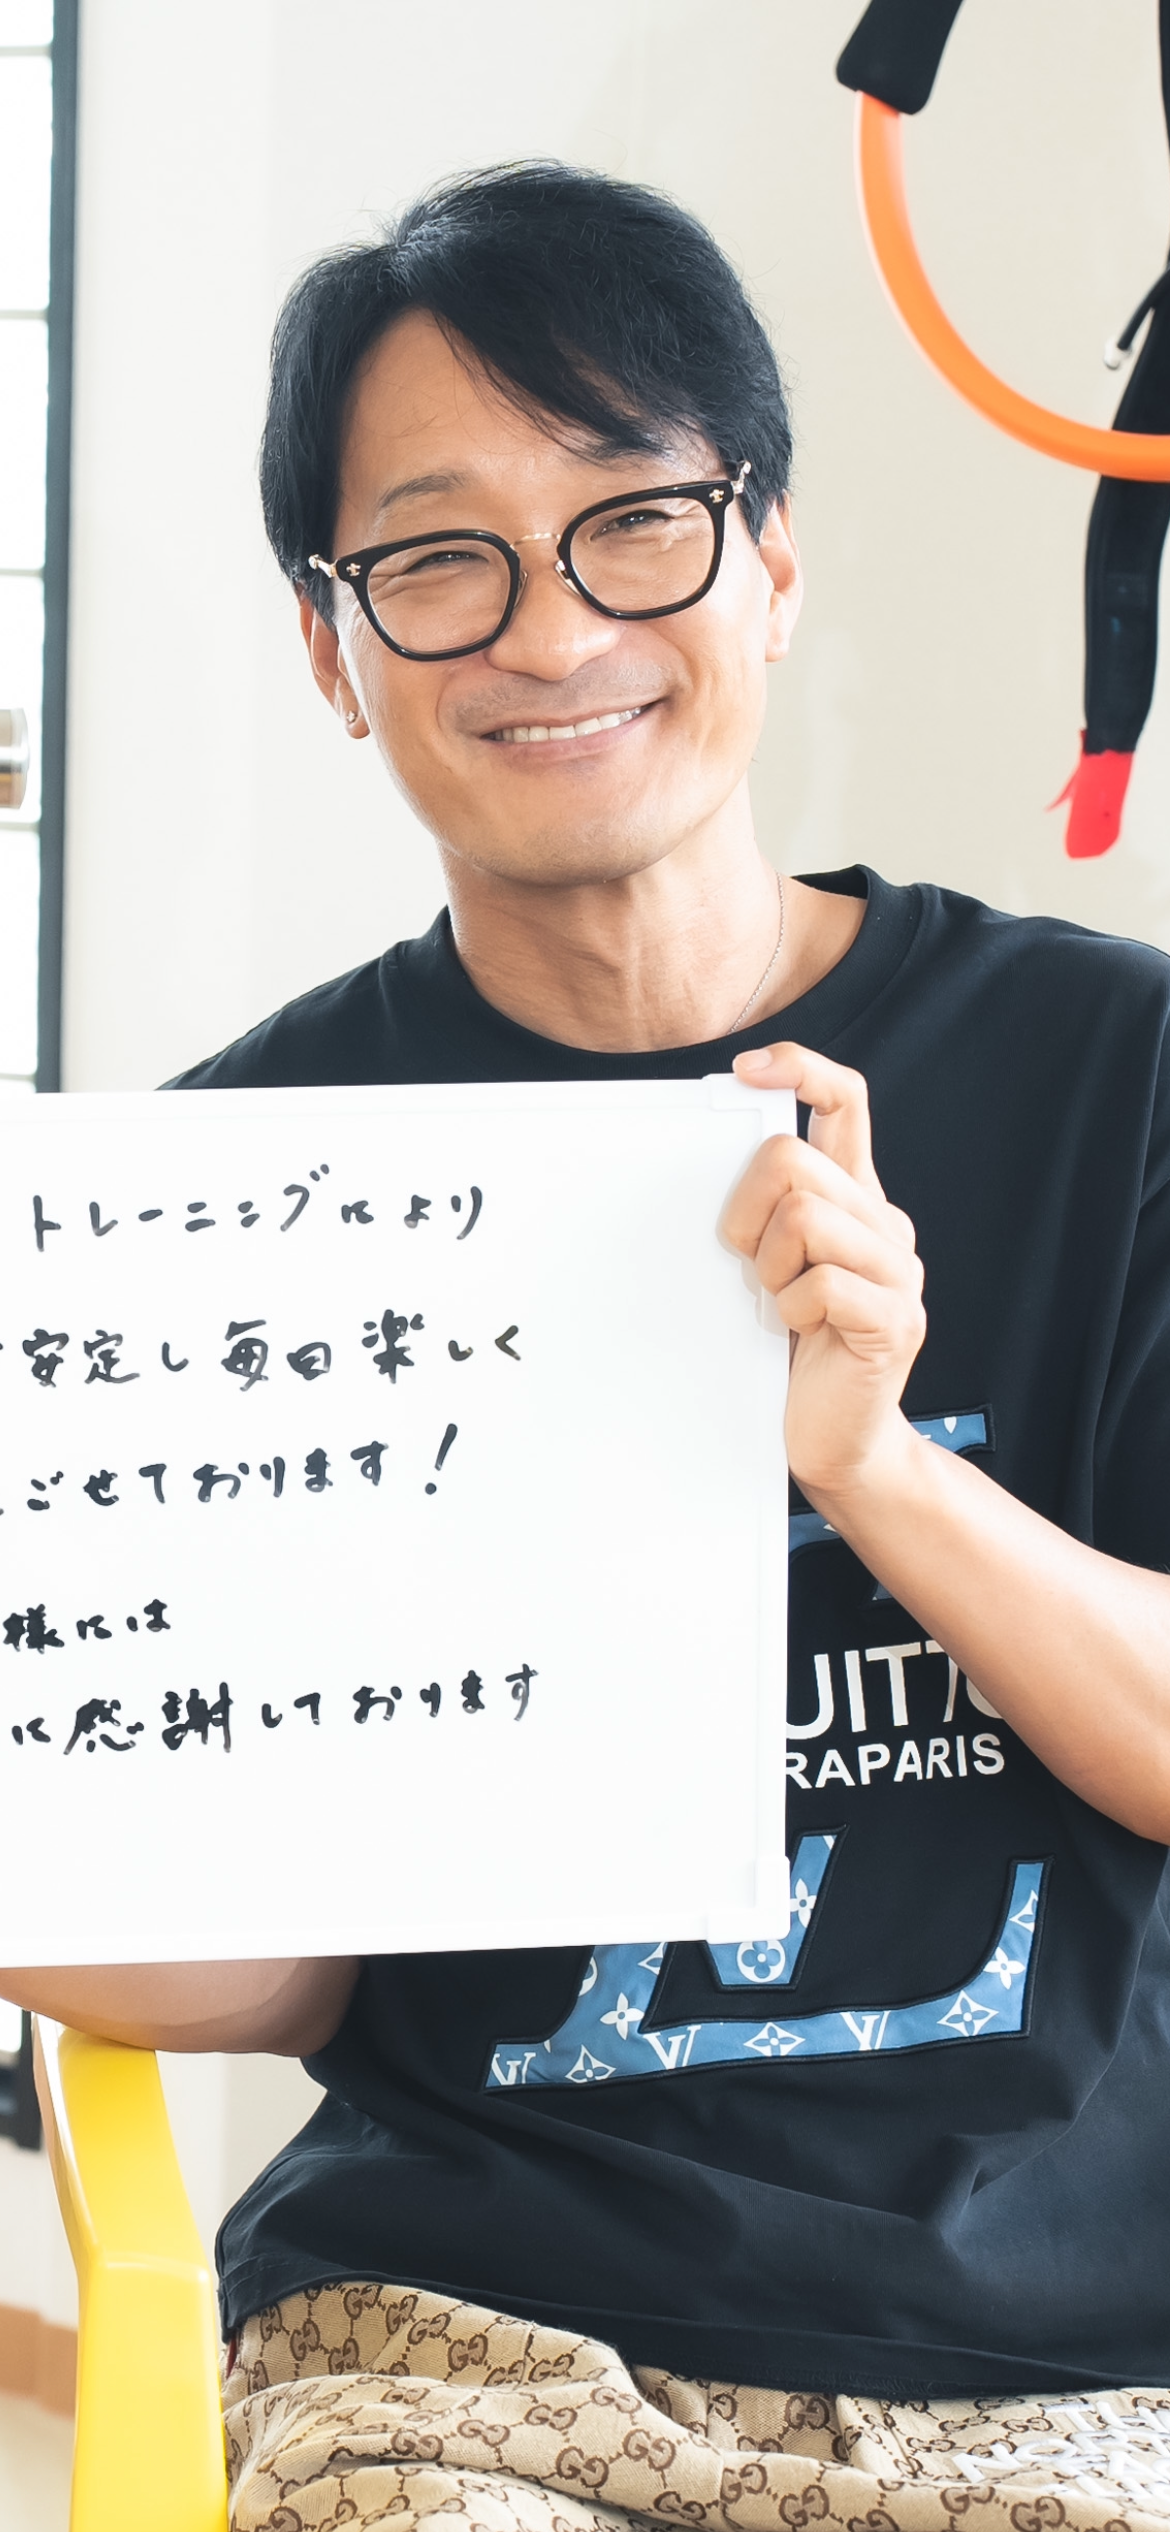 トレーニングにより
安定し毎日楽しく
ごせております!
様には
に感謝しております
UITT
RAPARIS